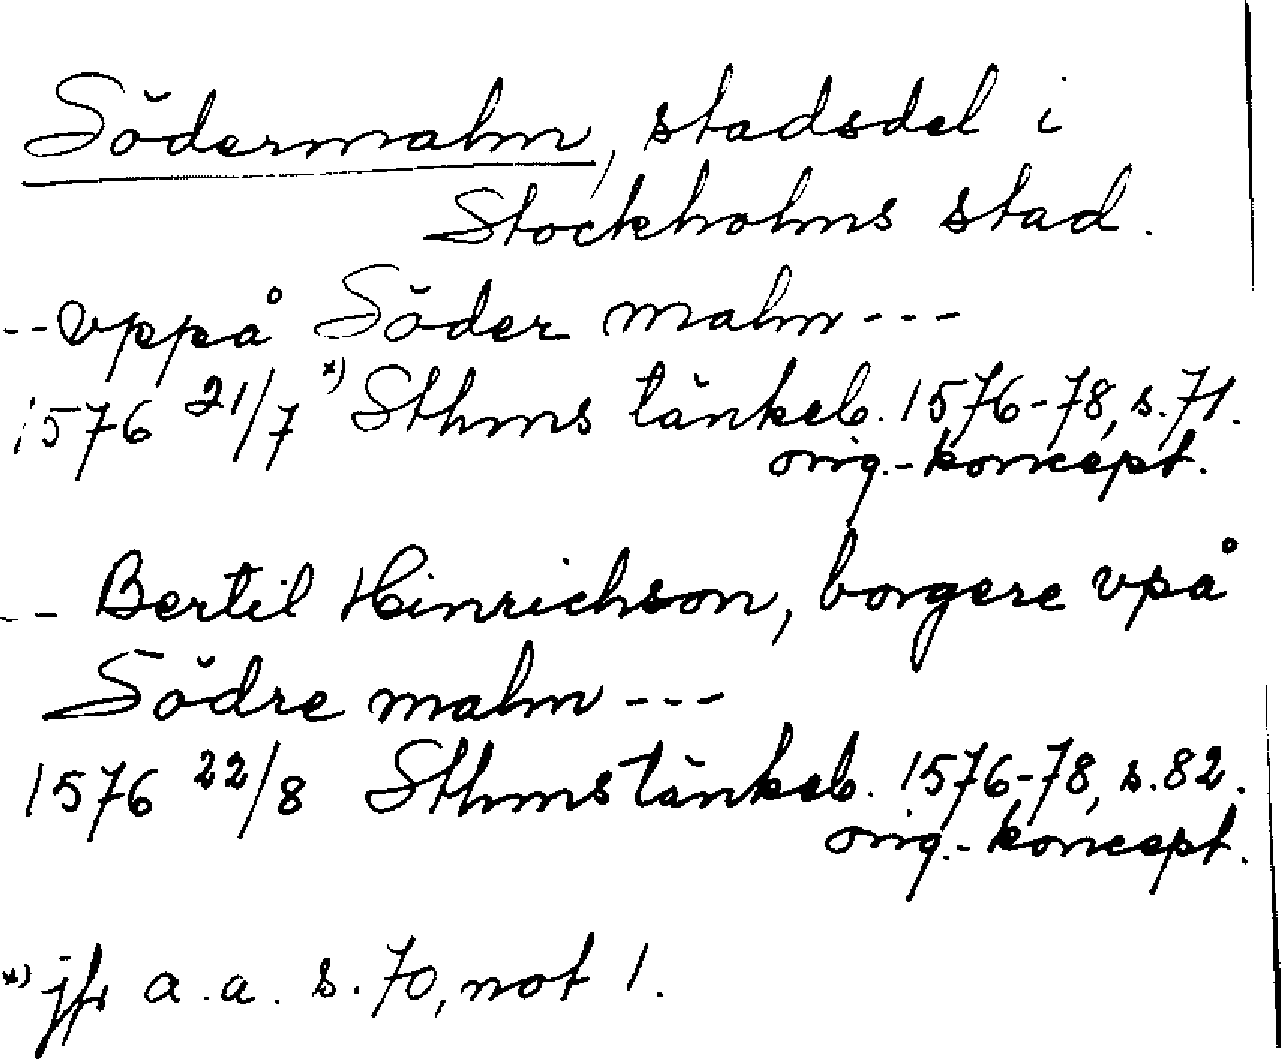 Södermalm, stadsdel i
Stockholms stad.
-- vppå Söder malm ---
1576 21/7 *) Sthms tänkeb. 1576-78, s. 71.
orig.-koncept.
-- Bertil Hinrichson, borgere vpå
Södre malm ---
1576 22/8 Sthms tänkeb. 1576-78, s. 82.
orig.-koncept.
*) jfr a.a. s. 70, not 1.